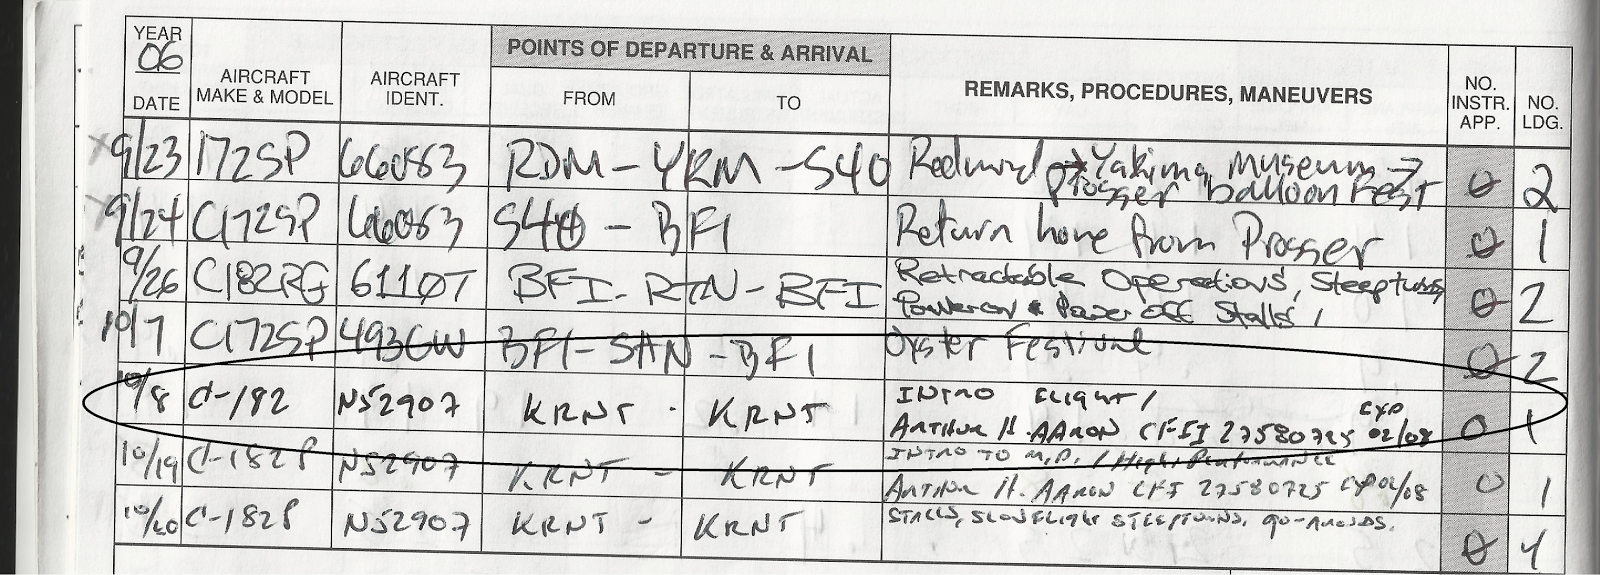 YEAR
06
POINTS OF DEPARTURE & ARRIVAL
DATE AIRCRAFT MAKE & MODEL AIRCRAFT IDENT. FROM TO REMARKS, PROCEDURES, MANEUVERS NO. INSTR. APP. NO. LDG.
9/23 172SP 66083 RDM - YKM - S40 Redmond → Yakima Museum →
Prosser balloon Fest 0 2
9/24 C172SP 66083 S40 - BFI Return home from Prosser 0 1
9/26 C182RG 6110T BFI - RTN - BFI Retractable Operations, Steepturns
Poweron & Power off Stalls, 0 2
10/7 C172SP 493GW BFI - SHN - BFI Oyster Festival 0 2
10/8 C-182 N52907 KRNT - KRNT INTRO FLIGHT/
ARTHUR H. AARON CFII 27580725 EXP 02/08 0 1
10/19 C-182P N52907 KRNT - KRNT INTRO TO M.P. / High Performance
ARTHUR H. AARON CFI 27580725 EXP 02/08 0 1
10/20 C-182P N52907 KRNT - KRNT STALLS, SLOWFLIGHT STEEPTURNS, GO-AROUNDS. 0 4